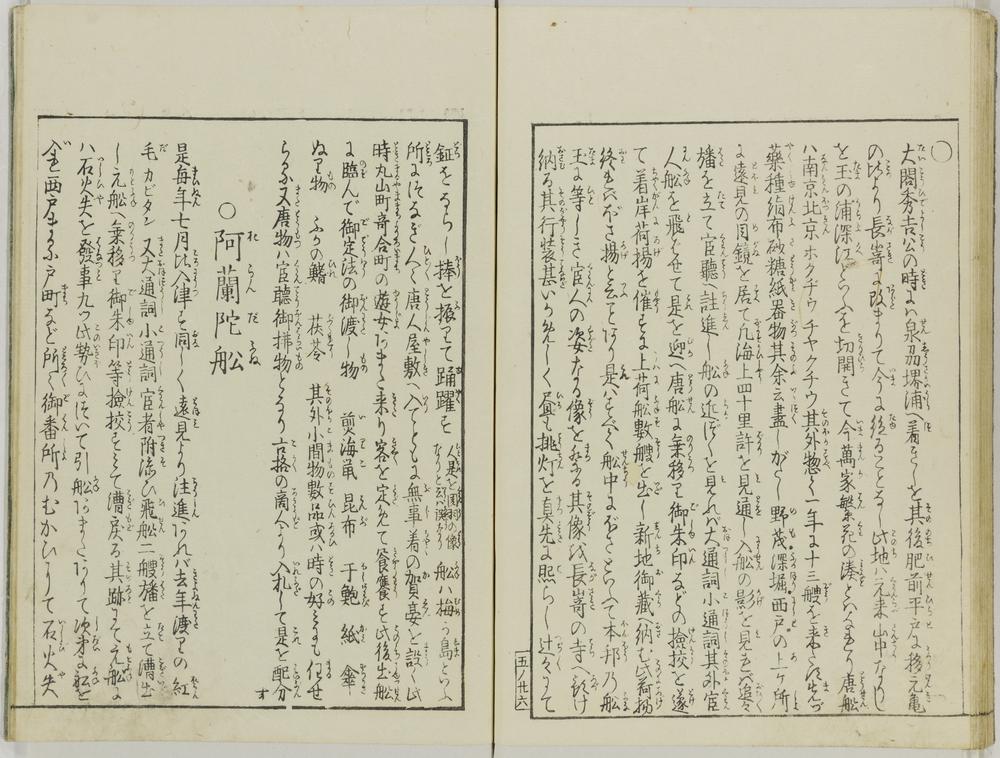 〇
大閤秀吉公の時は泉州堺浦へ着きしを其後肥前平戸に移元亀
の比より長嵜に改まりて今に絶ることなし此地ハ元来山中なりし
を玉の浦深江といふを切開きて今萬家繁花の湊とハなれり唐舩
ハ南京北京ホクチウチヤクチウ其外惣して一年に十三艘を来たす先ツ
藥種絹布砂糖紙器物其余云盡しがたし野茂深堀西戸の上ケ所
に遠見の目鏡を居て凡海上四十里許を見通し入舩の影を見れバ追々
旛を立て官聽へ註進し舩の近づくと見れバ大通詞小通詞其外官
人舩を飛ばせて是を迎へ唐舩に乗移て御朱印などの撿挍を遂
て着岸荷揚を催す上荷舩數艘を出し新地御藏へ納む此荷揚
終れバぼさ揚と云ことあり是ハすべて舩中にぼさといふて本邦乃舩
玉に等しき官人の姿なる像を祭る其像を長嵜の寺へ預け
納る其行装甚いかめしく昼も挑灯を真先に照らし辻々にて
五ノ廿六
鉦をならし棒を振りて踊躍す
舩ハ梅が島といふ
所につなぎ人〻唐人屋敷へ入てともに無事着の賀宴を設く此
時丸山町寄合町の遊女あまた来り客を定めて饗應す此後出舩
に臨んで御定法の御渡し物 煎海鼠 昆布 干鮑 紙 傘
ぬり物 ふかの鰭 茯苓 其外小間物數品或ハ時の好にまかせ
らる又唐物ハ官聽御拂物となり五ケ所の商人より入札して是を配分す
〇阿蘭陀舩
是毎年七月比入津す同しく遠見より注進あれバ去年渡りの紅
毛カビタン 又大通詞小通詞官者附添ひ飛舩二艘旛を立て漕出
し元舩へ乗移り御朱印等撿挍すみて漕戻る其跡にて元舩に
ハ石火矢を發事九つ此勢ひについて引舩あまたありて次第に舩を
金西戸になふ戸町など所〻御番所乃むかひにて石火矢